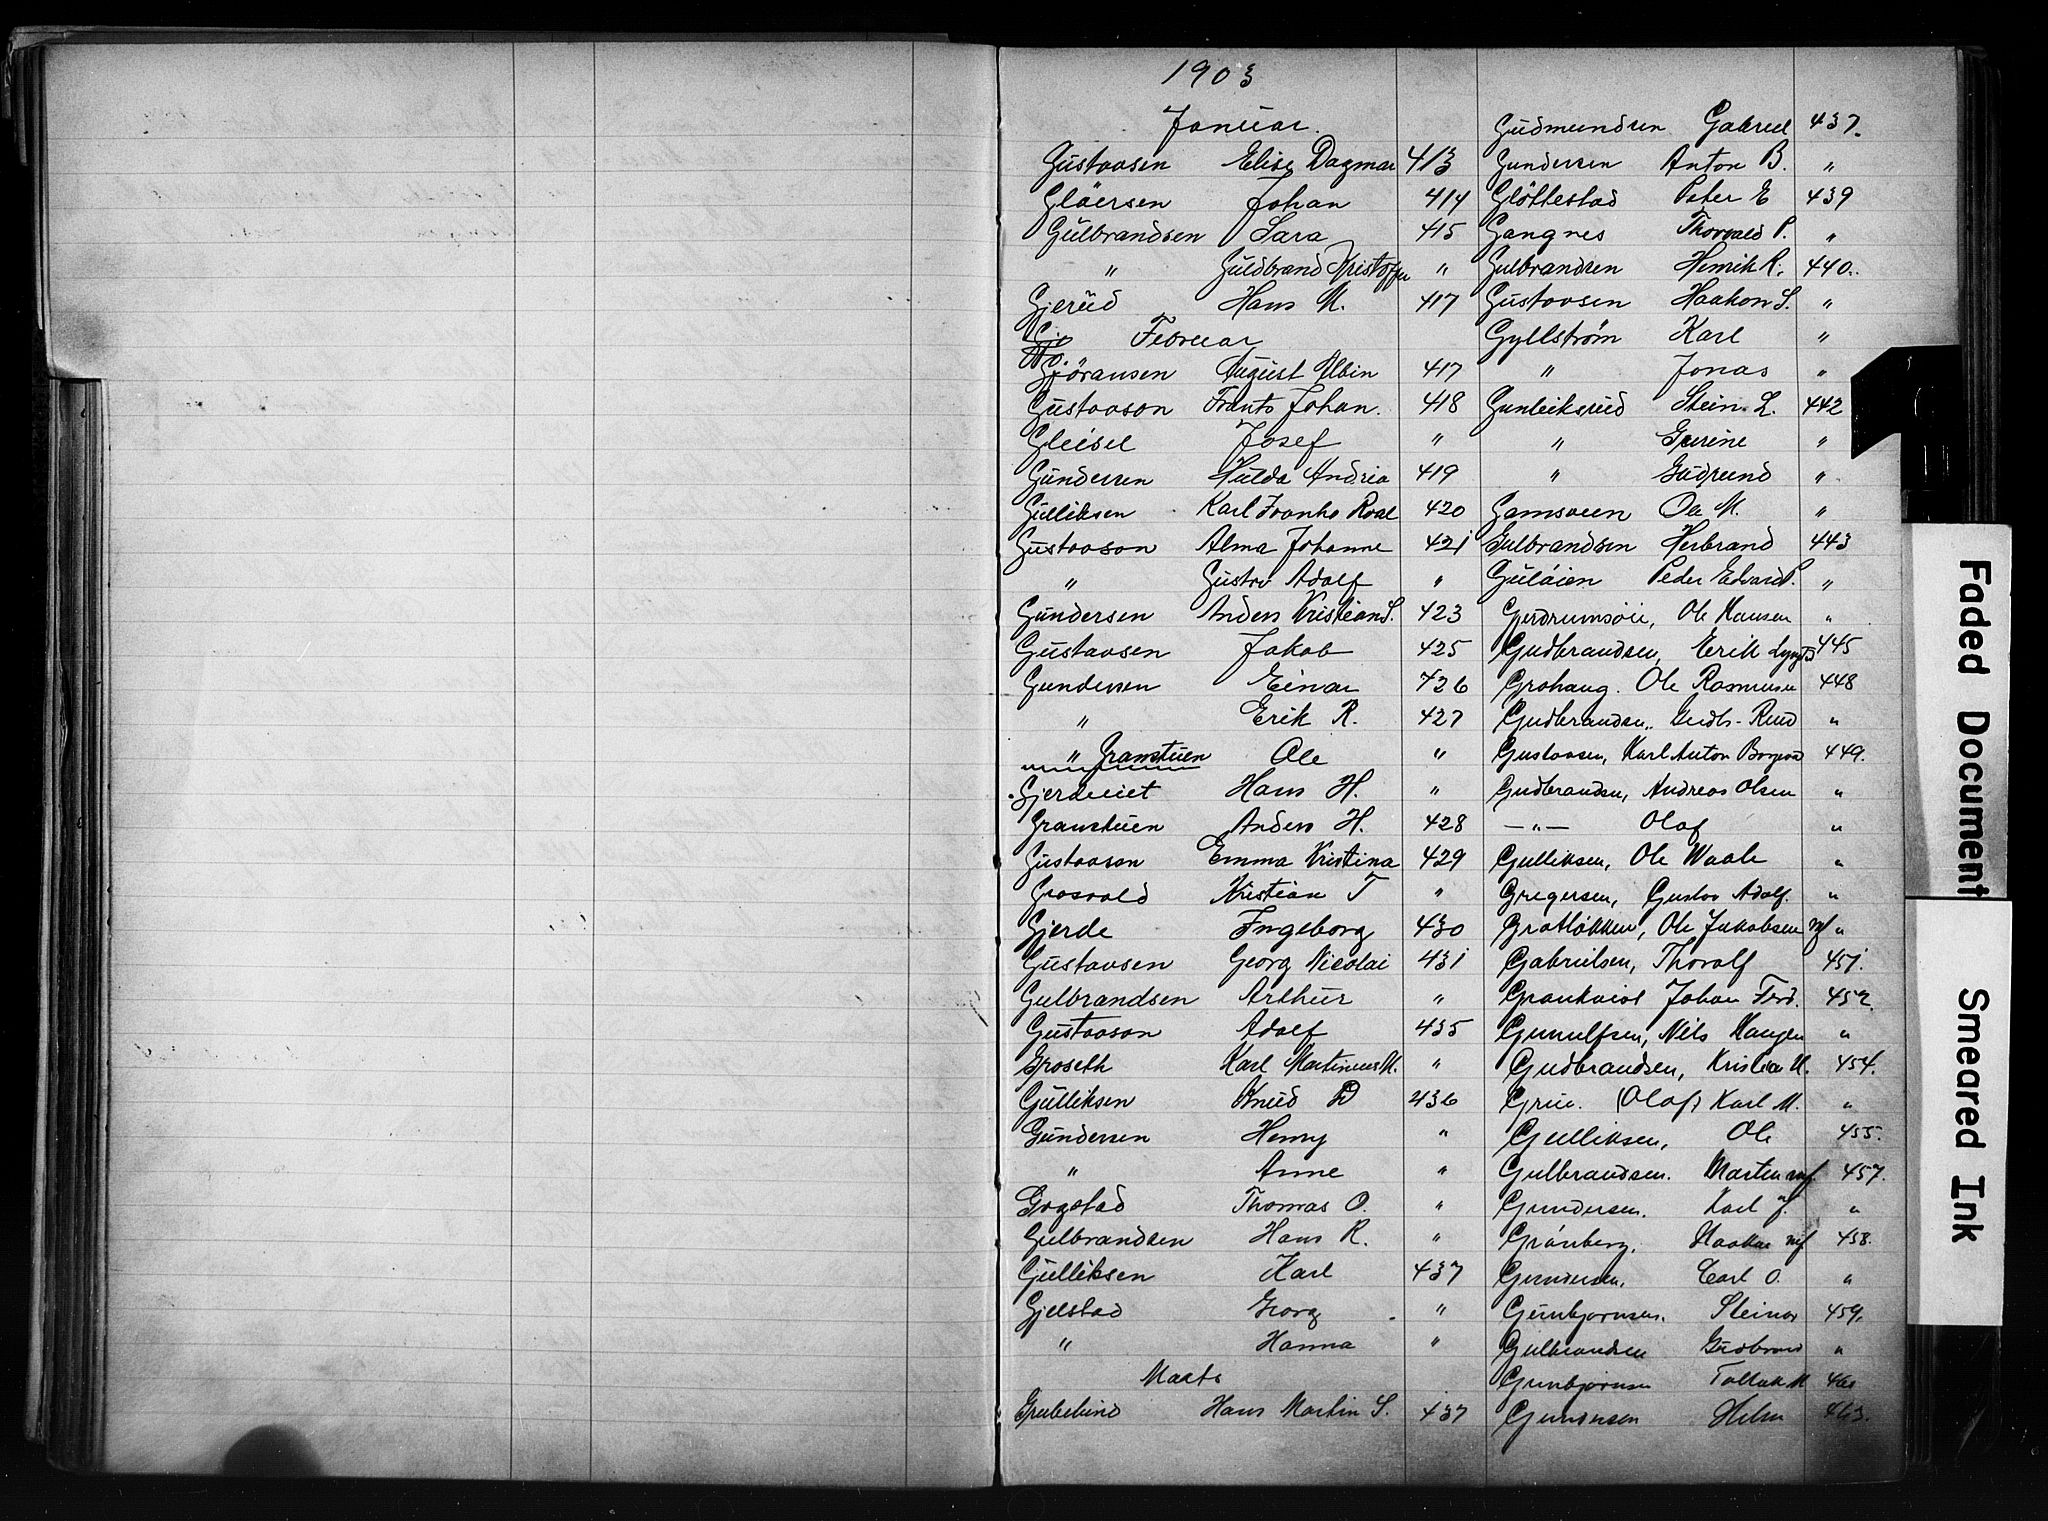 1903
Januar.
Gustavsen Elise Dagmar 413
Glöersen Johan 414
Gulbrandsen Sara 415
" Guldbrand Kristoffer "
Gjerud Hans M. 417
Februar
Göransen August Albin 417
Gustavson Frants Johan. 418
Gleisel Josef "
Gundersen Hulda Andrea 419
Gulliksen Karl Ivanho Roal 420
Gustavson Alma Johanne 421
" Gustav Adolf "
Gundersen Anders Kristian S. 423
Gustavsen Jakob 425
Gundersen Einar 426
" Erik R. 427
" Granstuen Ole "
Gjerdveiet Hans H. "
Granstuen Anders H. 428
Gustavson Emma Kristina 429
Grosvold Kristian T "
Gjerde Ingeborg 430
Gustavsen Georg Nicolai 431
Gulbrandsen Arthur "
Gustavson Adolf 435
Groseth Karl Martinius M. "
Gulliksen Knud D 436
Gundersen Henry "
" Anne "
Gogstad Thomas O. "
Gulbrandsen Hans R. "
Gulliksen Karl 437
Gjelstad Georg "
" Hanna "
Marts
Grubelund Hans Martin S. 437
Gudmundsen Gabriel 437.
Gundersen Anton B. "
Glöttestad Peter E 439
Gangnes Thorvald P. "
Gulbrandsen Henrik R. 440.
Gustavsen Haakon S. "
Gyllstrøm Karl "
" Jonas "
Gunleiksrud Stein. L. 442
" Gurine "
" Gudrund "
Gamsveen Ole M. "
Gulbrandsen Herbrand 443
Guláien Peder Edvard P. "
Gudrumsöie, Ole Hansen "
Gudbrandsen, Erik 445
Grohaug. Ole Rasmusen 448
Gudbrandsen, Gudb- Ruud "
Gustavsen, Karl Anton 449.
Gudbrandsen, Andreas Olsen "
—"— Olaf "
Gulliksen, Ole Waale "
Gregersen, Gustav Adolf. "
Grotløkken, Ole Jakobsen "
Gabrielsen, Thoralf 451.
Grankvist Johan Ferd. 452
Gunulfsen, Nils Haugen "
Gudbrandsen, Kristian M. 454.
Grue. (Olaf) Karl M. "
Gulliksen, Ole 455.
Gulbrandsen. Martin 457.
Gundersen. Karl J. "
Grönberg, Haakon 458.
Gundersen, Carl O. "
Gunbjørnsen. Steinar 459.
Gulbrandsen Gudbrand "
Gunbjørnsen Tallak M 460
Gundersen Helm 463.
Faded Document
Smeared Ink